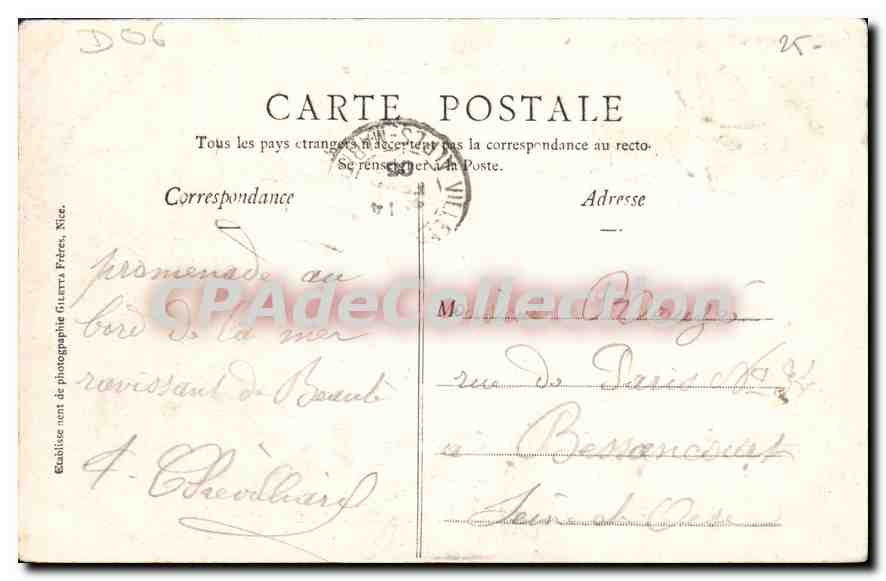 D06
25-
CARTE POSTALE
Tous les pays étrangers n'acceptent pas la correspondance au recto-
Se renseigner à la Poste.
Correspondance
Adresse
promenade au
bord de la mer
ravissant de Beauté
CPAdeCollection
rue de Paris
à Bessancourt
Seine et Oise
Etablissement de photographie GILETTA Frères, Nice.